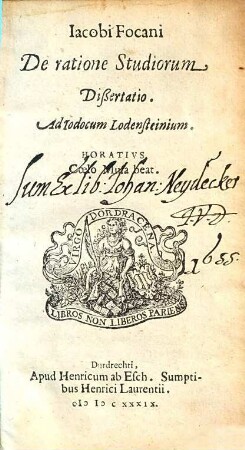 Iacobi Focani
De ratione Studiorum
Dißertatio.
Ad Iodocum Lodensteinium.
HORATIVS
Cœlo Musa beat.
Sum Ex lib: Johan: Neydecker
1655
VIRGO DORDRACENA
LIBROS NON LIBEROS PARIENS
Durdrechti,
Apud Henricum ab Esch. Sumpti-
bus Henrici Laurentii.
cIɔ Iɔ c xxxIx.